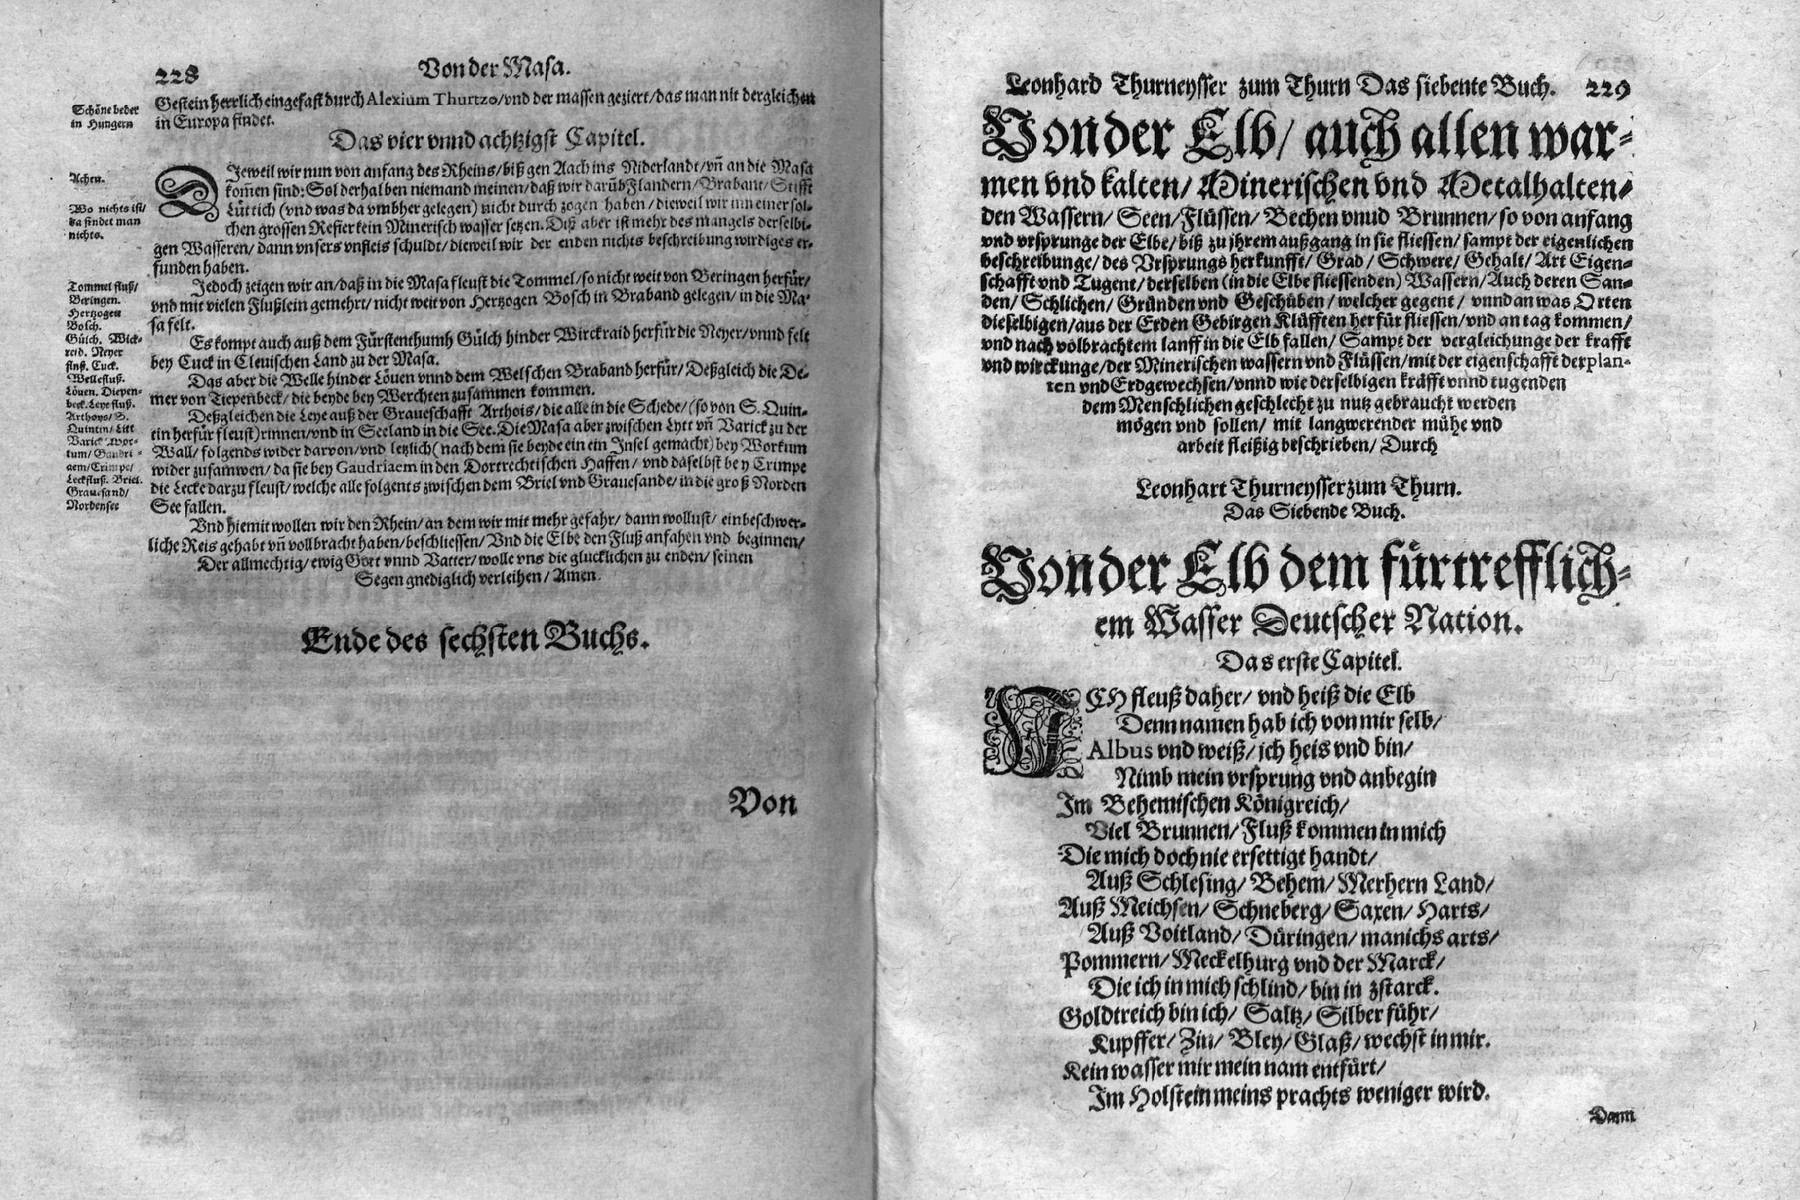 228
Von der Masa.
Schöne beder
in Hungern
Gestein herrlich eingefast durch Alexium Thurtzo/vnd der massen geziert/das man nit dergleichen
in Europa findet.
Das vier vnnd achtzigst Capitel.
Achen.
Wo nichts ist/
da findet man
nichts.
DJeweil wir nun von anfang des Rheins/biß gen Aach ins Niderlandt/vñ an die Masa
kom̃en sind: Sol derhalben niemand meinen/daß wir darũb Flandern/Brabant/Stifft
Lüttich (vnd was da vmbher gelegen) nicht durch zogen haben/dieweil wir inn einer sol-
chen grossen Refier kein Minerisch wasser setzen. Diß aber ist mehr des mangels derselbi-
gen Wasseren/dann vnsers vnfleis schuldt/dieweil wir der enden nichts beschreibung wirdiges er-
funden haben.
Tommel fluß/
Beringen.
Hertzogen
Bosch.
Gülch. Wick-
reid. Neyer
fluß. Cuck.
Welle fluß.
Löuen. Diepen-
beck. Leye fluß.
Arthoys/ S.
Quintin/ Litt
Varick
tum/
aem/Crimpe/
Leck fluß. Briel.
Grauesand/
Nordensee
Jedoch zeigen wir an/daß in die Masa fleust die Tommel/so nicht weit von Beringen herfür/
vnd mit vielen Flußlein gemehrt/nicht weit von Hertzogen Bosch in Braband gelegen/in die Ma-
sa felt.
Es kompt auch auß dem Fürstenthumh Gülch hinder Wirckraid herfür die Neyer/vnnd felt
bey Cuck in Cleuischen Land zu der Masa.
Das aber die Welle hinder Löuen vnnd dem Welschen Braband herfür/Deßgleich die De-
mer von Tiepenbeck/die beyde bey Werchten zusammen kommen.
Deßgleichen die Leye auß der Graueschafft Arthois/die alle in die Schede/(so von S. Quin-
tein herfür fleust)rinnen/vnd in Seeland in die See. Die Masa aber zwischen Lytt vñ Varick zu der
Wall/folgends wider darvon/vnd letzlich(nach dem sie beyde ein ein Jnsel gemacht) bey Workum
wider zusamwen/da sie bey Gaudriaem in den Dortrechtischen Haffen/ vnd daselbst bey Crimpe
die Lecke darzu fleust/welche alle folgents zwischen dem Briel vnd Grauesande/in die groß Norden
See fallen.
Vnd hiemit wollen wir den Rhein/an dem wir mit mehr gefahr/ dann wollust/ ein beschwer-
liche Reis gehabt vñ vollbracht haben/beschliessen/ Vnd die Elbe den Fluß anfahen vnd beginnen/
Der allmechtig/ewig Gott vnnd Vatter/wolle vns die glucklichen zu enden/seinen
Segen gnediglich verleihen/Amen.
Ende des sechsten Buchs.
Von
Leonhard Thurneysser zum Thurn Das siebente Buch. 229
Von der Elb/ auch allen war-
men vnd kalten/ Minerischen vnd Metalhalten-
den Wassern/ Seen/Flüssen/ Bechen vnud Brunnen/ so von anfang
vnd vrsprunge der Elbe/biß zu jhrem außgang in sie fliessen/ sampt der eigenlichen
beschreibunge/des Vrsprungs herkunfft/ Grad/Schwere/Gehalt/Art Eigen-
schafft vnd Tugent/derselben (in die Elbe fliessenden) Wassern/Auch deren San-
den/Schlichen/Gründen vnd Geschüben/welcher gegent/ vnnd an was Orten
dieselbigen/aus der Erden Gebirgen Klüfften herfür fliessen/vnd an tag kommen/
vnd nach volbrachtem lauff in die Elb fallen/ Sampt der vergleichunge der krafft
vnd wirckunge/der Minerischen wassern vnd Flüssen/mit der eigenschafft der plan-
ten vnd Erdgewechsen/vnnd wie derselbigen kräfft vnnd tugenden
dem Menschlichen geschlecht zu nutz gebraucht werden
mögen vnd sollen/ mit langwerender mühe vnd
arbeit fleißig beschrieben/ Durch
Leonhart Thurneysser zum Thurn.
Das Siebende Buch.
Von der Elb dem fürtrefflich-
em Wasser Deutscher Nation.
Das erste Capitel.
JCH fleuß daher/ vnd heiß die Elb
Denn namen hab ich von mir selb/
Albus vnd weiß/ich heis vnd bin/
Nimb mein vrsprung vnd anbegin
Jm Behemischen Königreich/
Viel Brunnen/Fluß kommen in mich
Die mich doch nie ersettigt handt/
Auß Schlesing/ Behem/ Merhern Land/
Auß Meichsen/ Schneberg/ Saxen/ Harts/
Auß Voitland/ Düringen/ manichs arts/
Pommern/Meckelhurg vnd der Marck/
Die ich in mich schlind/bin in zstarck.
Goldtreich bin ich/ Saltz/ Silber führ/
Kupffer/ Zin/ Bley/Glaß/wechst in mir.
Kein wasser mir mein nam entfürt/
Jm Holstein meins prachts weniger wird.
Dann